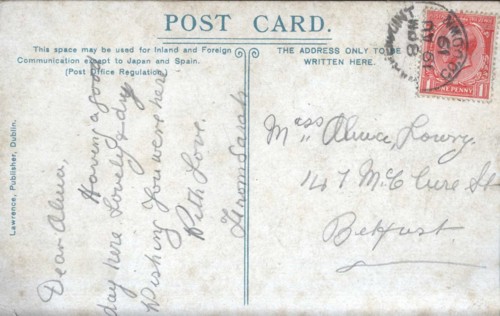 POST CARD.
This space may be used for Inland and Foreign
Communication except to Japan and Spain.
(Post Office Regulation).
THE ADDRESS ONLY TO BE
WRITTEN HERE.
Lawrence, Publisher, Dublin.
Dear Alma,
Having a good
day here Lovely & dry
Wishing you were here
With Love.
From Sarah
Miss Alma Lowry.
147 McClure St
Belfast
ONE PENNY